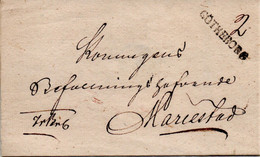 2
GÖTHEBORG
Konungens
Befallnings hafvande
Mariestad